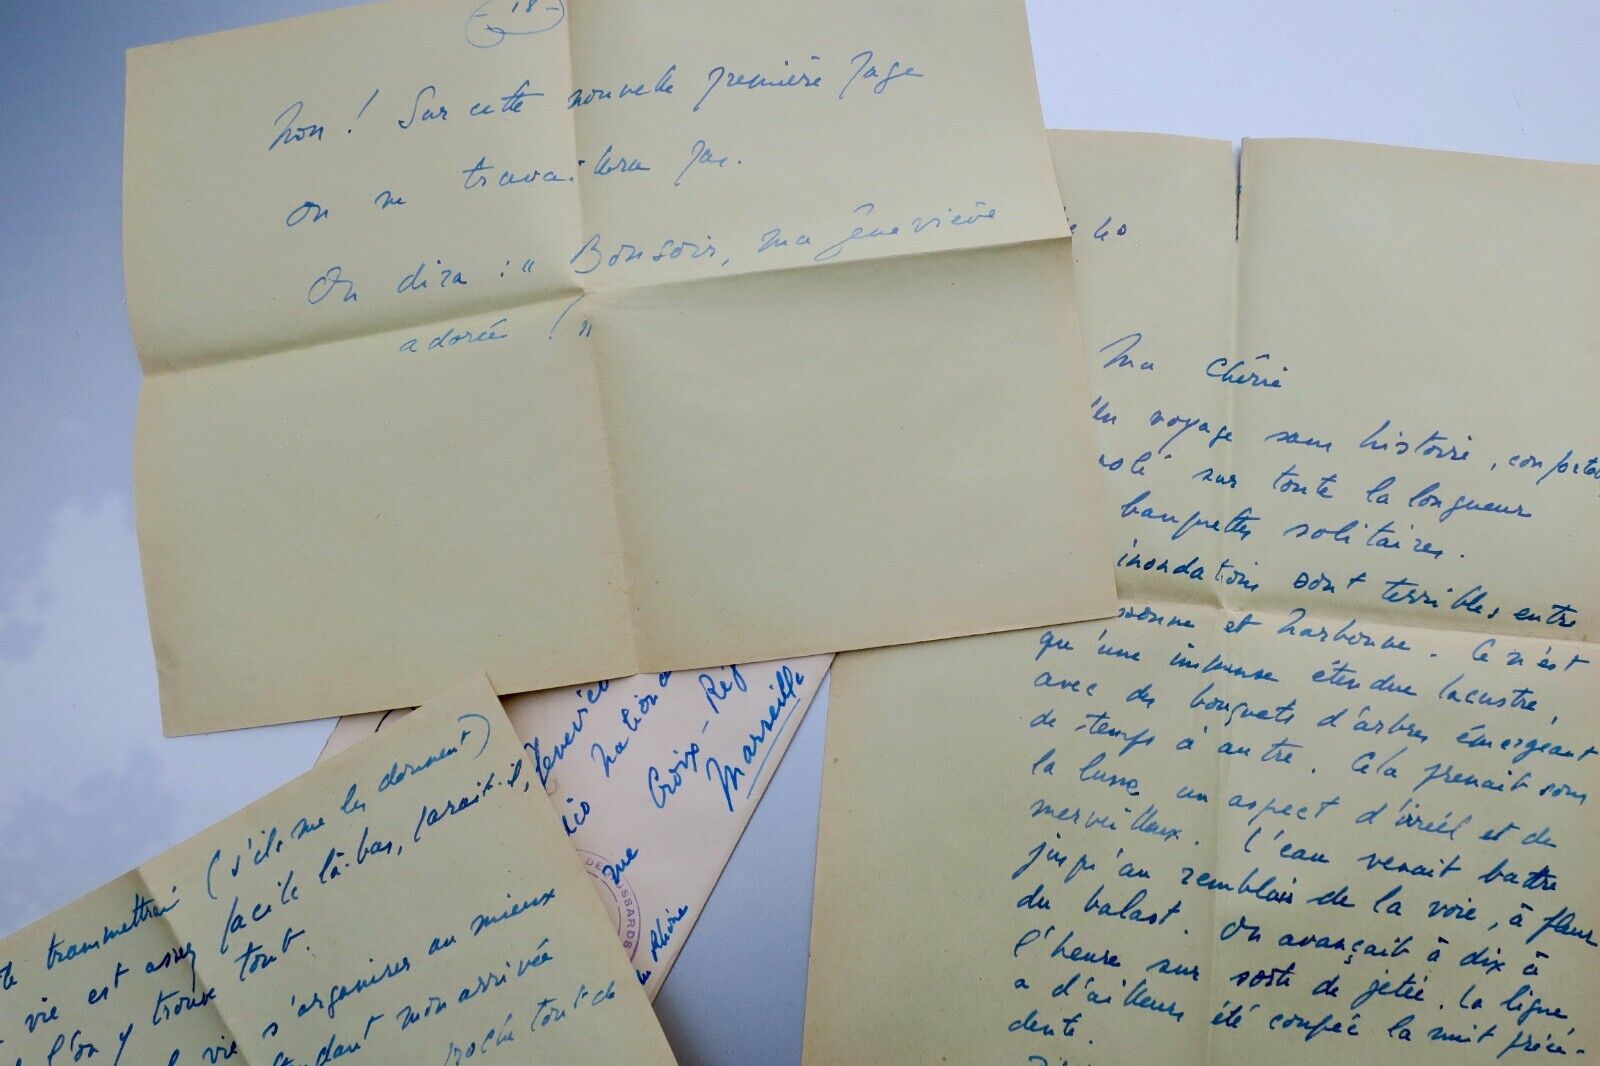 - 18 -
Non ! Sur cette nouvelle première page
on ne travaillera pas.
On dira : " Bonsoir, ma Geneviève
adorée ! "
40
Ma chérie
Un voyage sans histoire, confortab
sur toute la longueur
banquettes solitaires.
inondations sont terribles entre
ssonne et Narbonne. Ce n'est
qu'une immense étendue lacustre,
avec des bouquets d'arbres émergeant
de temps à autre. Cela prenait sous
la lune un aspect d'irréel et de
merveilleux. L'eau venait battre
jusqu'au remblais de la voie, à fleur
du balast. On avançait à dix à
l'heure sur sorte de jetée. La ligne
a d'ailleurs été coupée la nuit précé-
dente.
Geneviève
Nationa
Croix-Ro
Marseille
rue
du Rhône
DE HUSSARDS
te transmettrai (s'ils me les donnent)
vie est assez facile là-bas, parait-il,
l'on y trouve tout.
vie s'organiser au mieux
dant mon arrivée
roche tout de